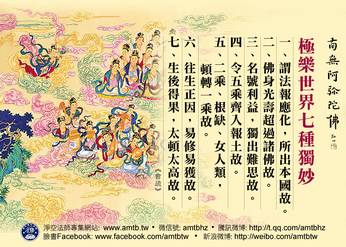 南無阿彌陀佛
極樂世界七種獨妙
一、謂法報應化，所出本國故。
二、佛身光壽超過諸佛故。
三、名號利益，獨出難思故。
四、令五乘齊入報土故。
五、二乘、根缺、女人類，
頓轉一乘故。
六、往生正因，易修易獲故。
七、生後得果，太頓太高故。
《會疏》
淨空法師專集網站: www.amtb.tw • 微信號: amtbhz • 騰訊微博: http://t.qq.com/amtbhz
臉書Facebook: www.facebook.com/amtbtw • 新浪微博: http://weibo.com/amtbtw